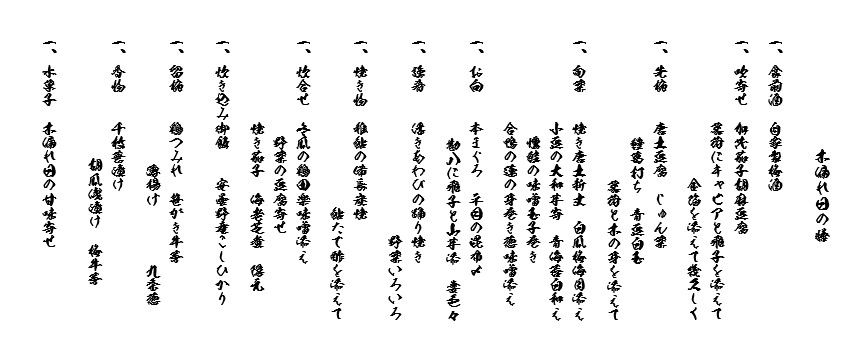 木洩れ日の膳
一、食前酒 自家製梅酒
一、吹寄せ 加茂茄子胡麻豆腐
蓴菜にキャビアと飛子を添えて
金箔を添えて幾久しく
一、先椀 唐土豆腐 じゅん菜
蓮葛打ち 青豆白毛
蓴菜と木の芽を添えて
一、旬菜 焼き唐土新丈 白瓜梅海月添え
小豆の大和芋寄 青海苔白和え
燻鮭の味噌玉子巻き
合鴨の蓮の芽巻き葱味噌添え
一、お向 本まぐろ 平目の昆布〆
勘八に飛子と山芋添 妻色々
一、強肴 浮きあわびの踊り焼き
野菜いろいろ
一、焼き物 稚鮎の備長炭焼
鮎たで酢を添えて
一、炊合せ 冬瓜の鶏田楽味噌添え
野菜の豆腐寄せ
焼き茄子 海老芝煮 隠元
一、炊き込み御飯 安曇野産こしひかり
一、留椀 鶏つみれ 笹がき牛蒡
薄揚げ 九条葱
一、香物 千枚瓜漬け
胡瓜浅漬け 梅牛蒡
一、水菓子 木洩れ日の甘味寄せ